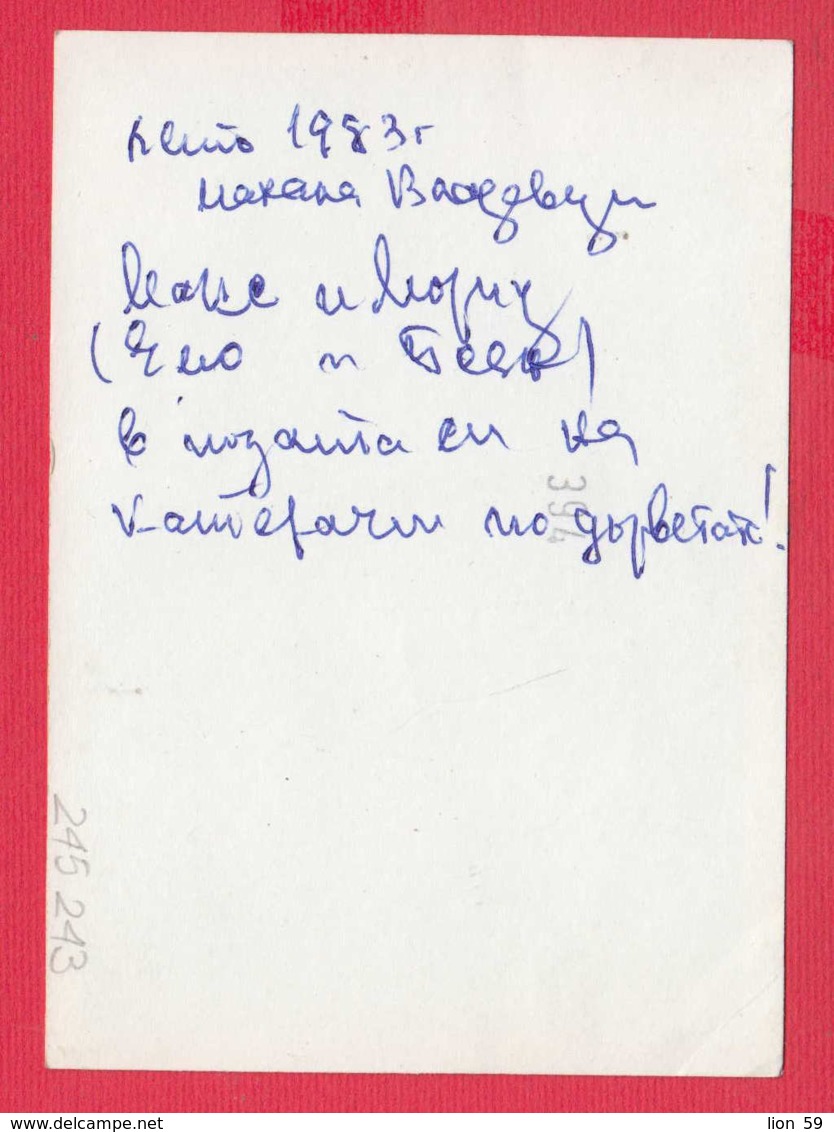 лето 1983 г
махала Владовци
Макс и Мориц
(Емо и Бебо)
в позата си на
катерачи по дърветата!
394
245 243
www.delcampe.net
lion 59